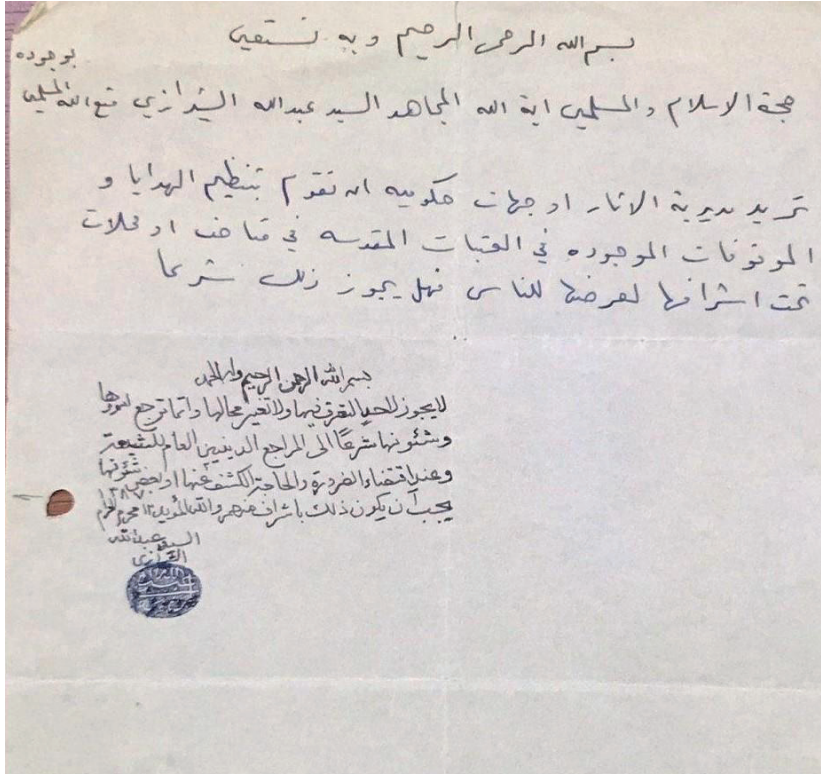 بسم الله الرحمن الرحيم وبه نستعين
حجة الاسلام والمسلمين اية الله المجاهد السيد عبدالله الشيرازي متع الله المسلمين
بوجوده
تريد مديرية الاثار او جهات حكوميه ان تقوم بتنظيم الهدايا و
الموقوفات الموجوده في العتبات المقدسه في متاحف او محلات
تحت اشرافها لعرضها للناس فهل يجوز ذلك شرعا
بسم الله الرحمن الرحيم وله الحمد
لا يجوز لاحد التصرف فيها ولا تغيير محالها وانما ترجع امورها
وشئونها شرعًا الى المراجع الدينيين العام للشيعة
وعند اقتضاء الضرورة والحاجة الكشف عنها او بعض شئونها
يجب أن يكون ذلك باشراف منهم والله المؤيد ١٢ محرم الحرام
السيد عبدالله
الشيرازي